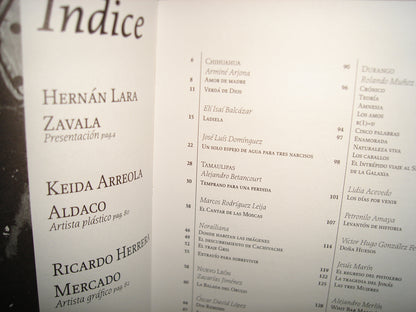 Índice
HERNÁN LARA
ZAVALA
Presentación pag.4
KEIDA ARREOLA
ALDACO
Artista plástico pag. 80
RICARDO HERRERA
MERCADO
Artista gráfico pag. 82
6 CHIHUAHUA
Arminé Arjona
8 AMOR DE MADRE
11 VERDÁ DE DIOS
Elí Isaí Balcázar
15 LADIELA
José Luis Domínguez
22 UN SOLO ESPEJO DE AGUA PARA TRES NARCINOS
28 TAMAULIPAS
Alejandro Betancourt
30 TEMPRANO PARA UNA PERDIDA
Marcos Rodríguez Leija
38 EL CANTAR DE LAS MOSCAS
Norailiana
DONDE HABITAN LAS IMÁGENES
EL DESCUBRIMIENTO DE CACHIVACHE
EL TRAJE GRIS
EXTRAÑO PARA SOBREVIVIR
Zacarías Jiménez
LA BALADA DEL ORUGO
Óscar David López
90 DURANGO
Rolando Muñoz
96 CRÓNICO
TEORÍA
AMNESIA
LOS AMOS
94 CINCO PALABRAS
97 ENAMORADA
NATURALEZA VIVA
98 LOS CABALLOS
EL INTRÉPIDO VIAJE
DE LA GALAXIA
Lidia Acevedo
101 LOS DÍAS POR VENIR
Petronilo Amaya
107 LEVANTÓN DE HISTORIA
Víctor Hugo González
114 DOÑA HUESOS
Jesús Marín
119 EL REGRESO DEL PISTOLERO
LA TRAGEDIA DEL JONÁS
LAS TRES MUJERES
Alejandro Merlín